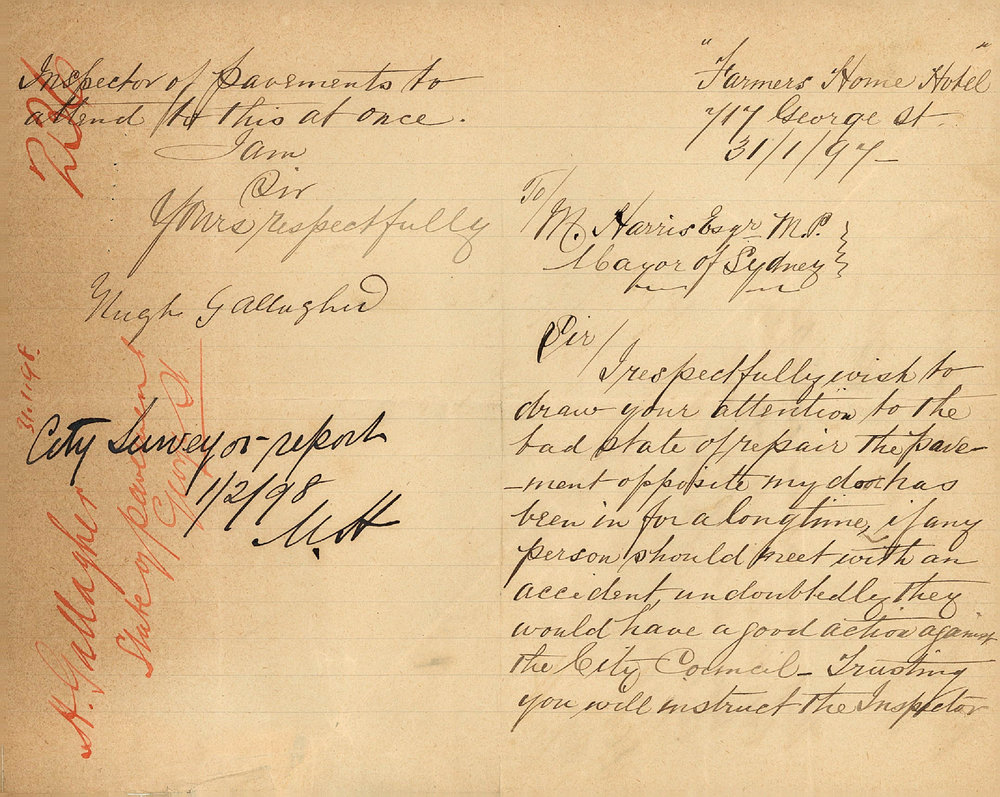 " Farmers Home Hotel "
717 George St
31/1/97
To/
M. Harris Esqr M.P.
Mayor of Sydney
Sir/
I respectfully wish to
draw your attention to the
bad state of repair the pave-
-ment opposite my door has
been in for a long time, if any
person should meet with an
accident undoubtedly they
would have a good action against
the City Council - Trusting
you will instruct the Inspector
Inspector of pavements to
attend to this at once.
I am
Sir
Yours respectfully
Hugh Gallagher
City Surveyor - report
1/2/98
M.H
H. Gallagher
State of pavement
George St
31.1.98.